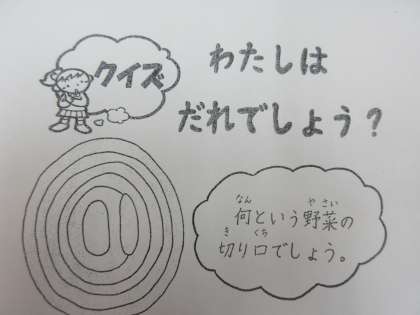 クイズ
わたしは
だれでしょう？
何という野菜の
切り口でしょう。
なん
やさい
き
くち